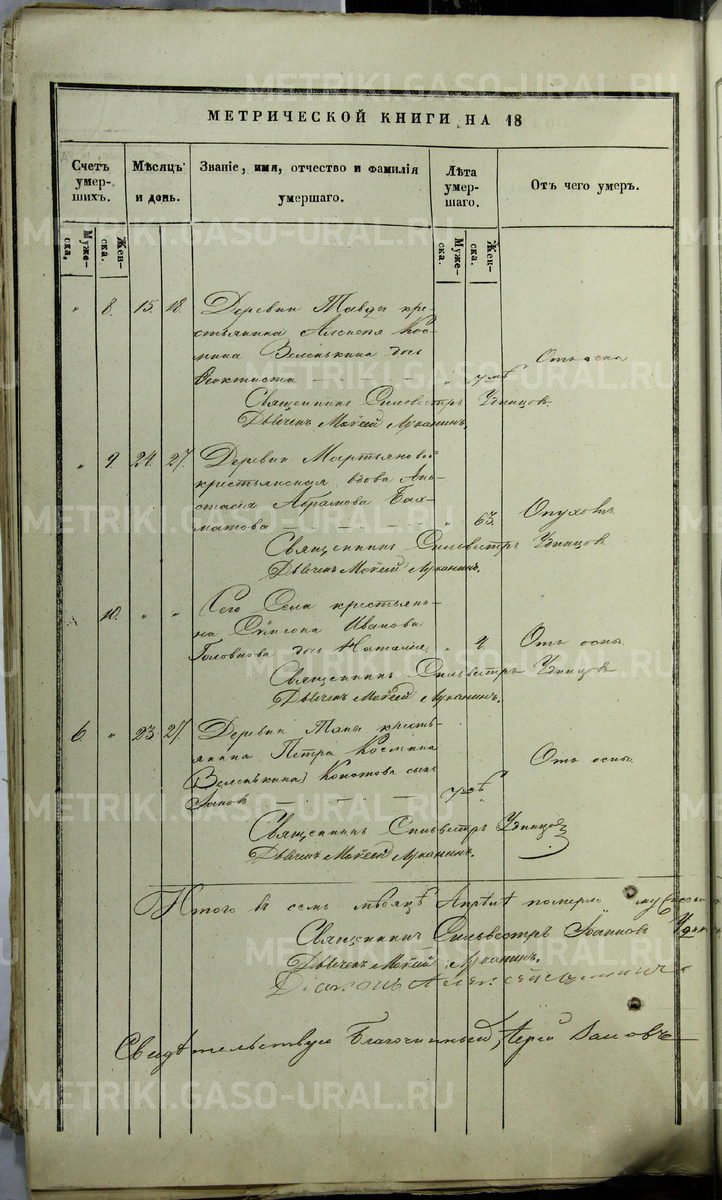 METRIKI.GASO-URAL.RU
МЕТРИЧЕСКОЙ КНИГИ НА 18
Счетъ умер- шихъ.
Мѣсяцъ и день.
Званіе, имя, отчество и фамилія умершаго.
Лѣта умер- шаго.
Отъ чего умеръ.
Муже- ска.
Жен- ска.
Муже- ска.
Жен- ска.
" 8. 15. 18. Деревни Тавды кре-
стьянина Алексѣя Кос-
мина Веленькина дочь
Ѳеоктиста — " 7 мѣ Отъ оспы
Священникъ Сильвестръ Удинцовъ
Дьячекъ Моѵсей Луканинъ.
" 9. 24. 27. Деревни Мартьяновой
крестьянская вдова Ана-
стасія Абрамова Бах-
матова — " 63. Опухоли
Священникъ Сильвестръ Удинцовъ
Дьячекъ Моѵсей Луканинъ.
10. " " Сего Села крестьяни-
на Симеона Иванова
Головкова дочь Наталія " 4. Отъ оспы.
Священникъ Сильвестръ Удинцовъ
Дьячекъ Моѵсей Луканинъ.
6. " 23. 27. Деревни крестья-
янина Петра Космина
Веленькина сынъ
Отъ оспы.
Священникъ Сильвестръ Удинцов
Дьячекъ Моѵсей Луканинъ.
Итого въ семъ мѣсяцѣ Апрѣлѣ померло
Священникъ Сильвестръ Іоанновъ
Дьячекъ Моѵсей Луканинъ.
Діаконъ Алексѣй
Свидѣтельствую Благочинный, Іерей